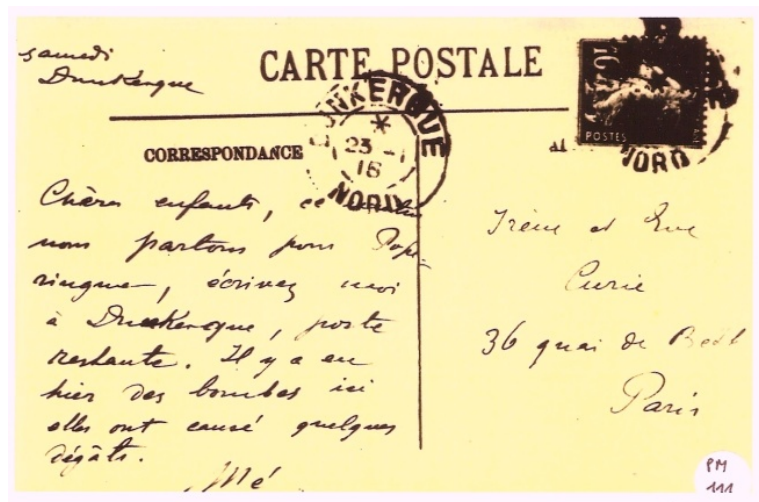 samedi
Dunkerque
CARTE POSTALE
DUNKERQUE
*
23 - 1
16
NORD
POSTES
NORD
CORRESPONDANCE
Chères enfants, ce
nous partons pour Pope-
ringue, écrivez moi
à Dunkerque, poste
restante. Il y a eu
hier des bombes ici
elles ont causé quelques
dégâts.
Mé
Irène et Eve
Curie
36 quai de
Paris
PM
111